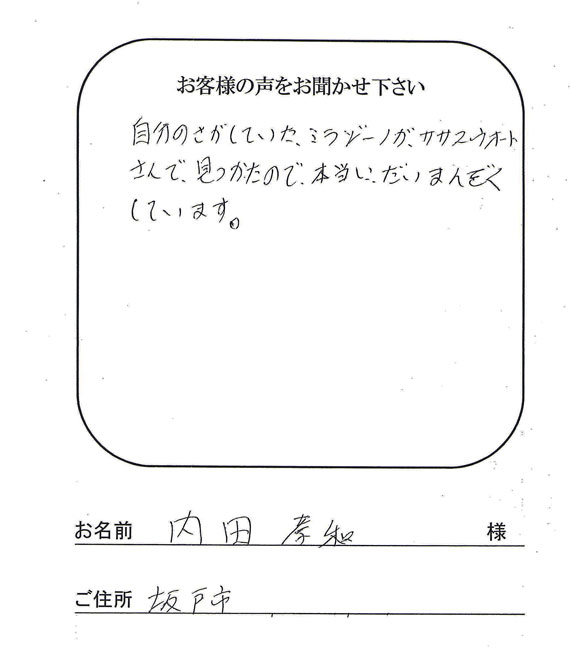 お客様の声をお聞かせ下さい
自分のさがしていた、ミラジーノが、ササスウオート
さんで、見つかたので、本当に、だいまんぞく
しています。
お名前 内田 孝和 様
ご住所 坂戸市